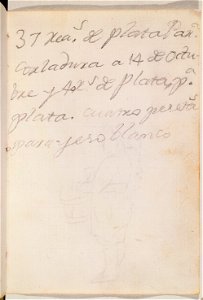 37 rea.s de plata Par.a
Corladura a 14 de Octu-
bre y 40 r.s de Plata, p.a
plata. cuatro peseta
para yeso blanco